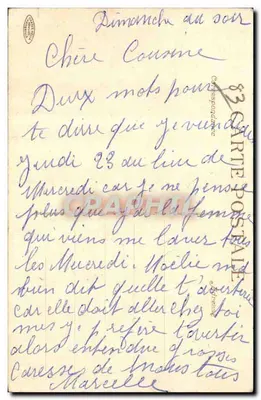 Dimanche au soir
Chère Cousine
Deux mots pour
te dirre que je viendrai
Jeudi 23 au lieu de
Mercredi car je ne pense
plus que j'ai la femme
qui viens me laver tous
les Mercredi. Noëlie ma
bien dit quelle t'avertirai
car elle doit aller chez toi
mes je préfère t'avertir
alors entendue grosses
Caresse de nous tous
Marcelle
CARTE POSTALE
Correspondance
83